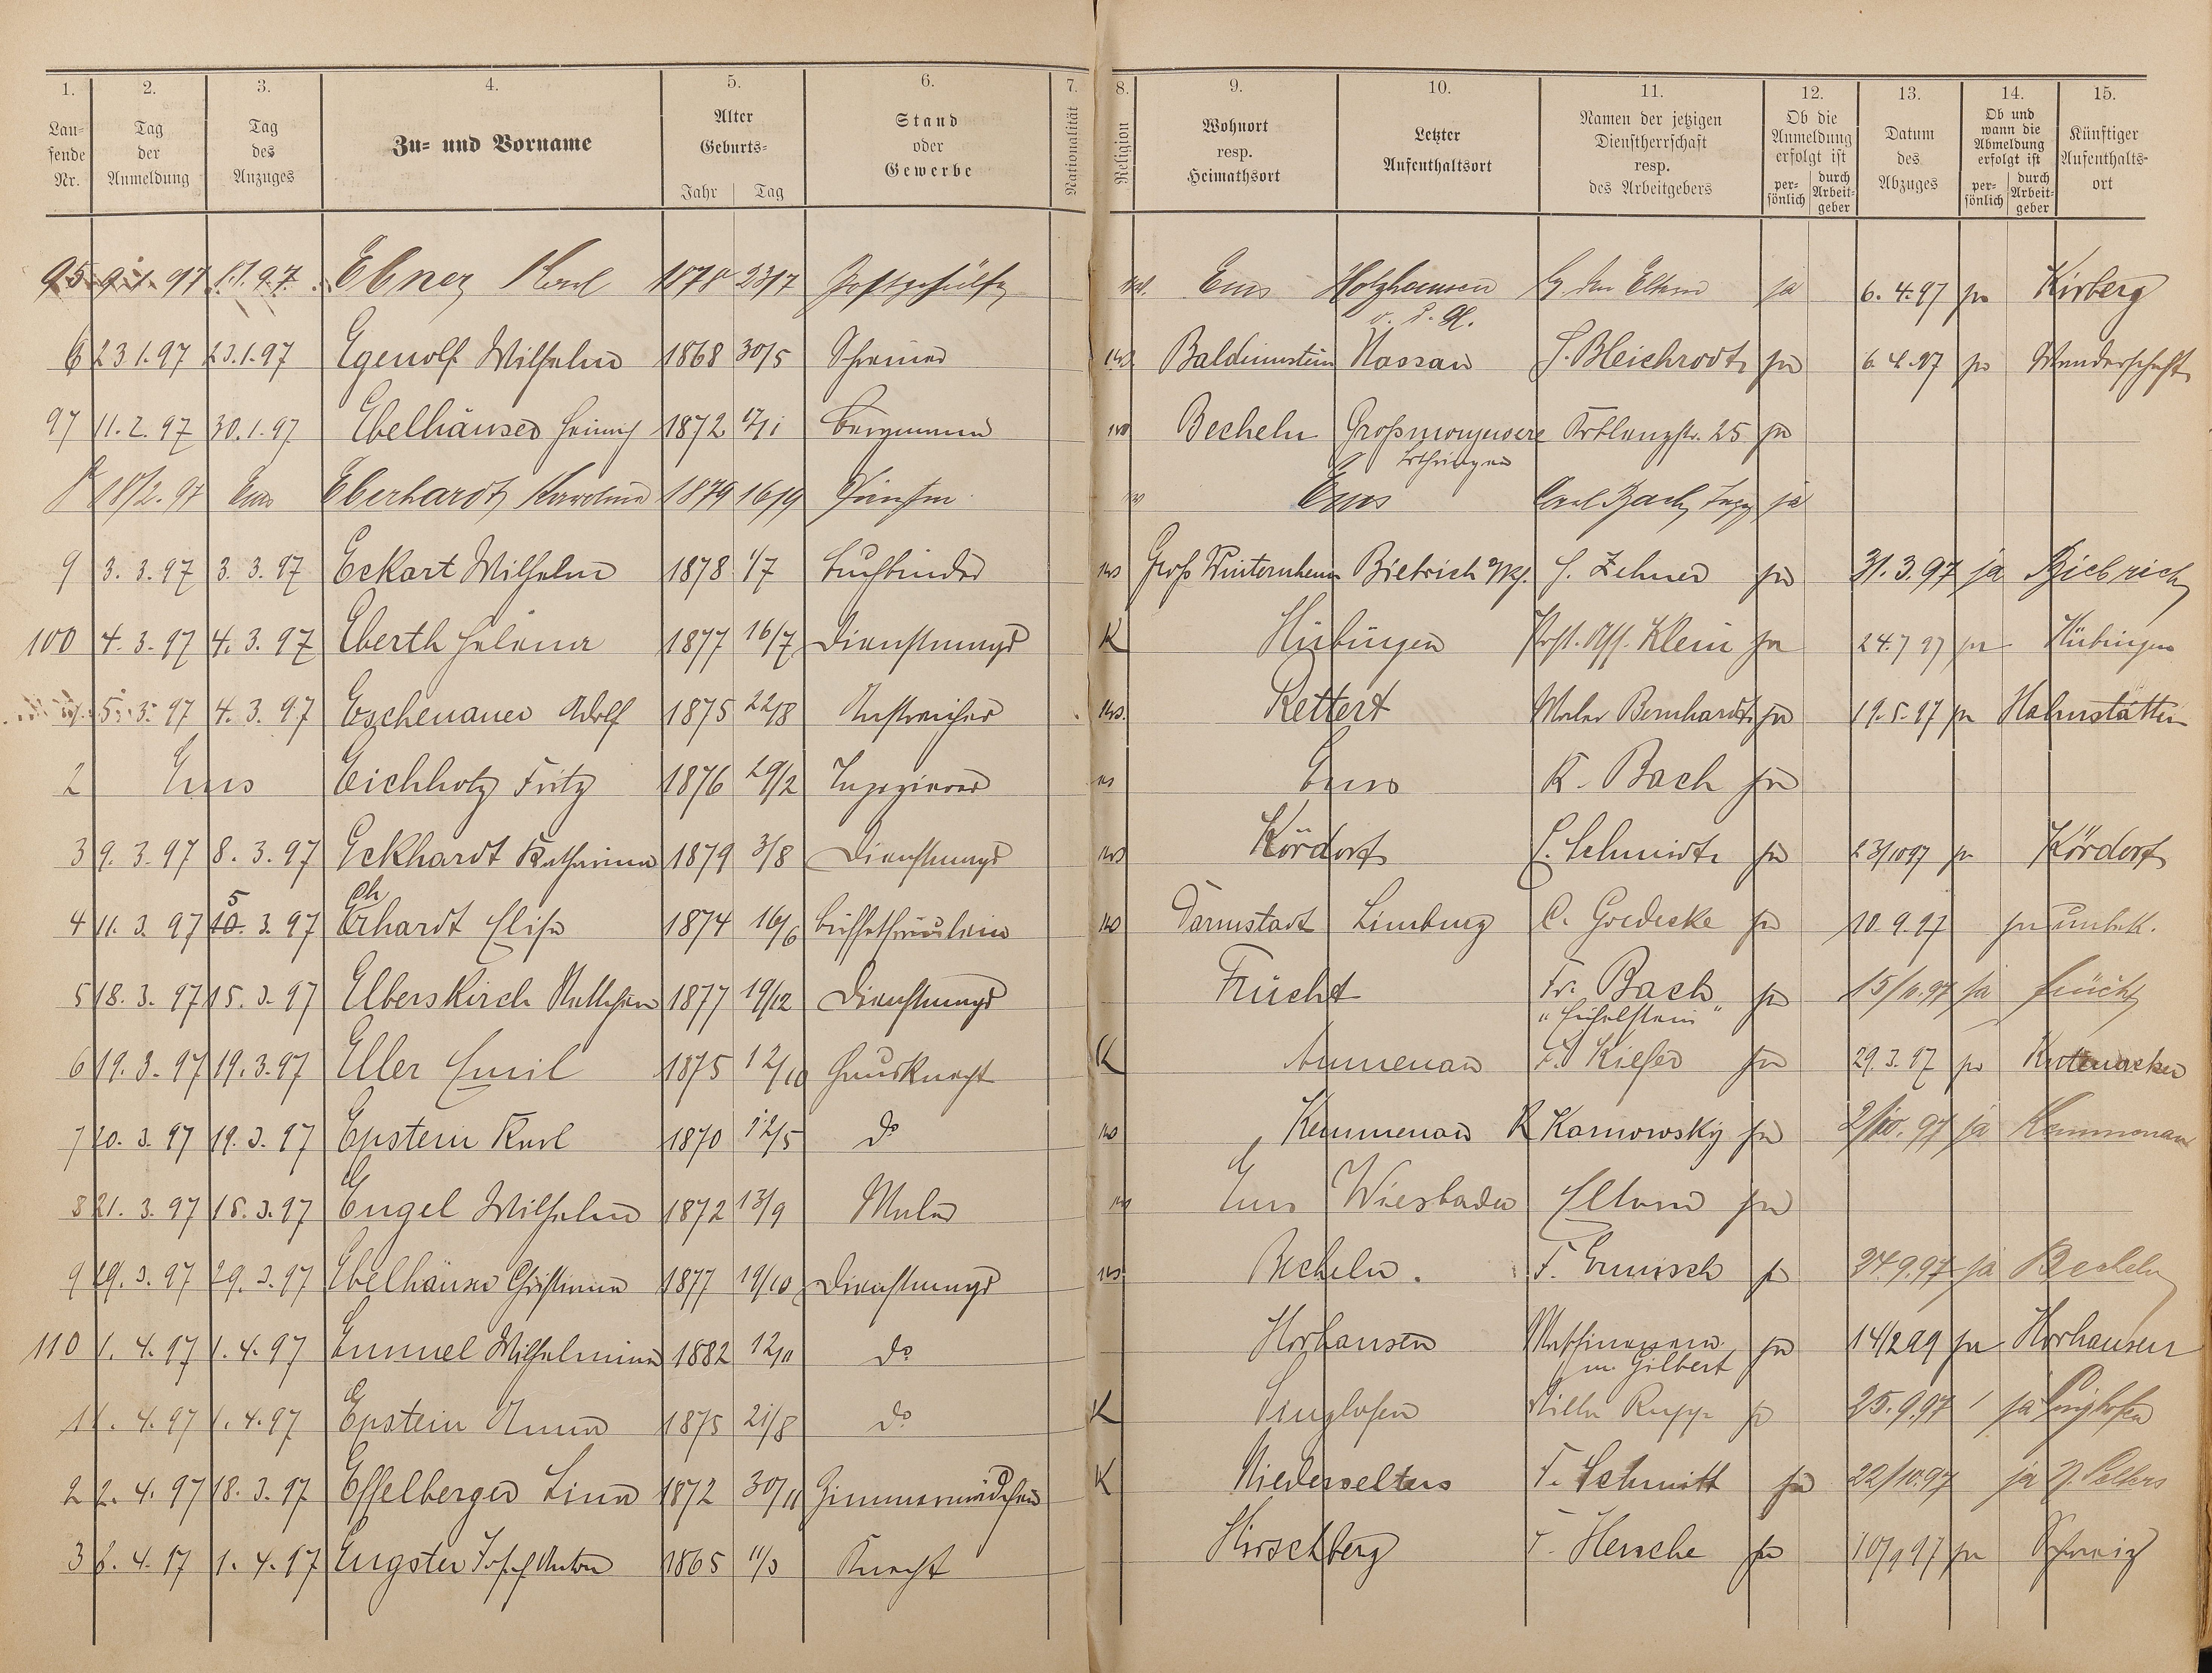 1. 2. 3. 4. 5. 6. 7. 8. 9. 10. 11. 12. 13. 14. 15.
Lau-
fende
Nr.
Tag
der
Anmeldung
Tag
des
Anzuges
Zu- und Vorname
Alter
Geburts-
Jahr Tag
Stand
oder
Gewerbe
Nationalität
Religion
Wohnort
resp.
Heimathsort
Letzter
Aufenthaltsort
Namen der jetzigen
Dienstherrschaft
resp.
des Arbeitgebers
Ob die
Anmeldung
erfolgt ist
per-
sönlich
durch
Arbeit-
geber
Datum
des
Abzuges
Ob und
wann die
Abmeldung
erfolgt ist
per-
sönlich
durch
Arbeit-
geber
Künftiger
Aufenthalts-
ort
95 9.1.97 1.1.97 Ebner Karl 1870 23/7 Postgehülfe Ems Holzhausen den Eltern ja 6.4.97 ja Kirberg
6 23 1.97 23.1.97 Egenolf Wilhelm 1868 30/5 Schreiner Balduinstein Nassau Bleichrodt ja 6.4.97 ja Wanderschaft
97 11.2.97 30.1.97 Ebelhäuser Heinrich 1872 Bergmann Becheln Großmoyeuvre Koblenzstr. 25 ja
Lothringen
18/2.97 Ems Eberhardt Karoline 1879 16/9 Ems Carl Bach ja
9 3.3.97 3.3.97 Eckart Wilhelm 1878 1/7 Buchbinder Groß Winternheim Biebrich H. Zehner ja 31.3.97 ja Biebrich
100 4.3.97 4.3.97 Eberth Helena 1877 16/7 Dienstmagd K Hübingen Post. Ass. Klein ja 24.7 97 ja Hübingen
5.3.97 4.3.97 Eschenauer Adolf 1875 22/8 Anstreicher Rettert Maler Bernhardt ja 19.5.97 ja Hahnstätten
2 Ems Eichholz Fritz 1876 29/2 Ems K. Bach ja
3 9.3.97 8.3.97 Eckhardt Katharina 1879 3/8 Dienstmagd Kördorf Schmidt ja 23/10 97 ja Kördorf
4 11.3.97 5 10.3.97 Erhardt Elise 1874 16/6 Büffetfräulein Darmstadt Limburg C. Goedecke ja 10.9.97 ja unbek.
5 18.3.97 15.3.97 Elberskirch 1877 19/12 Dienstmagd Frücht Fr. Bach ja ja Frücht
6 19.3.97 19.3.97 Eller Emil 1875 12/10 Hausknecht K Kiefer ja 29.3.97 ja
7 20.3.97 19.3.97 Epstein Karl 1870 12/5 do Kemmenau R Karnowsky ja 2/10.97 ja Kemmenau
8 21.3.97 15.3.97 Engel Wilhelm 1872 13/9 Maler Ems Wiesbaden Eltern ja
9 29.3.97 29.3.97 Ebelhäuser Christiane 1877 19/10 Dienstmagd Becheln. F. Ermisch ja 24.9.97 ja Becheln
110 1.4.97 1.4.97 Emmel Wilhelmine 1882 12/11 do Horhausen ja 14/2 99 ja Horhausen
Gilbert
1 1.4.97 1.4.97 Epstein Anna 1875 21/8 do K Singhofen Villa Rupp ja 25.9.97 ja Singhofen
2 2.4.97 18.3.97 Esselberger Lina 1872 30/11 Zimmermädchen K Niederselters F. Schmitt ja 22/10.97 ja N. Selters
3 6.4.97 1.4.97 Engster Josef Anton 1865 11/3 Knecht Hirschberg ja 10/9 97 ja Schweiz